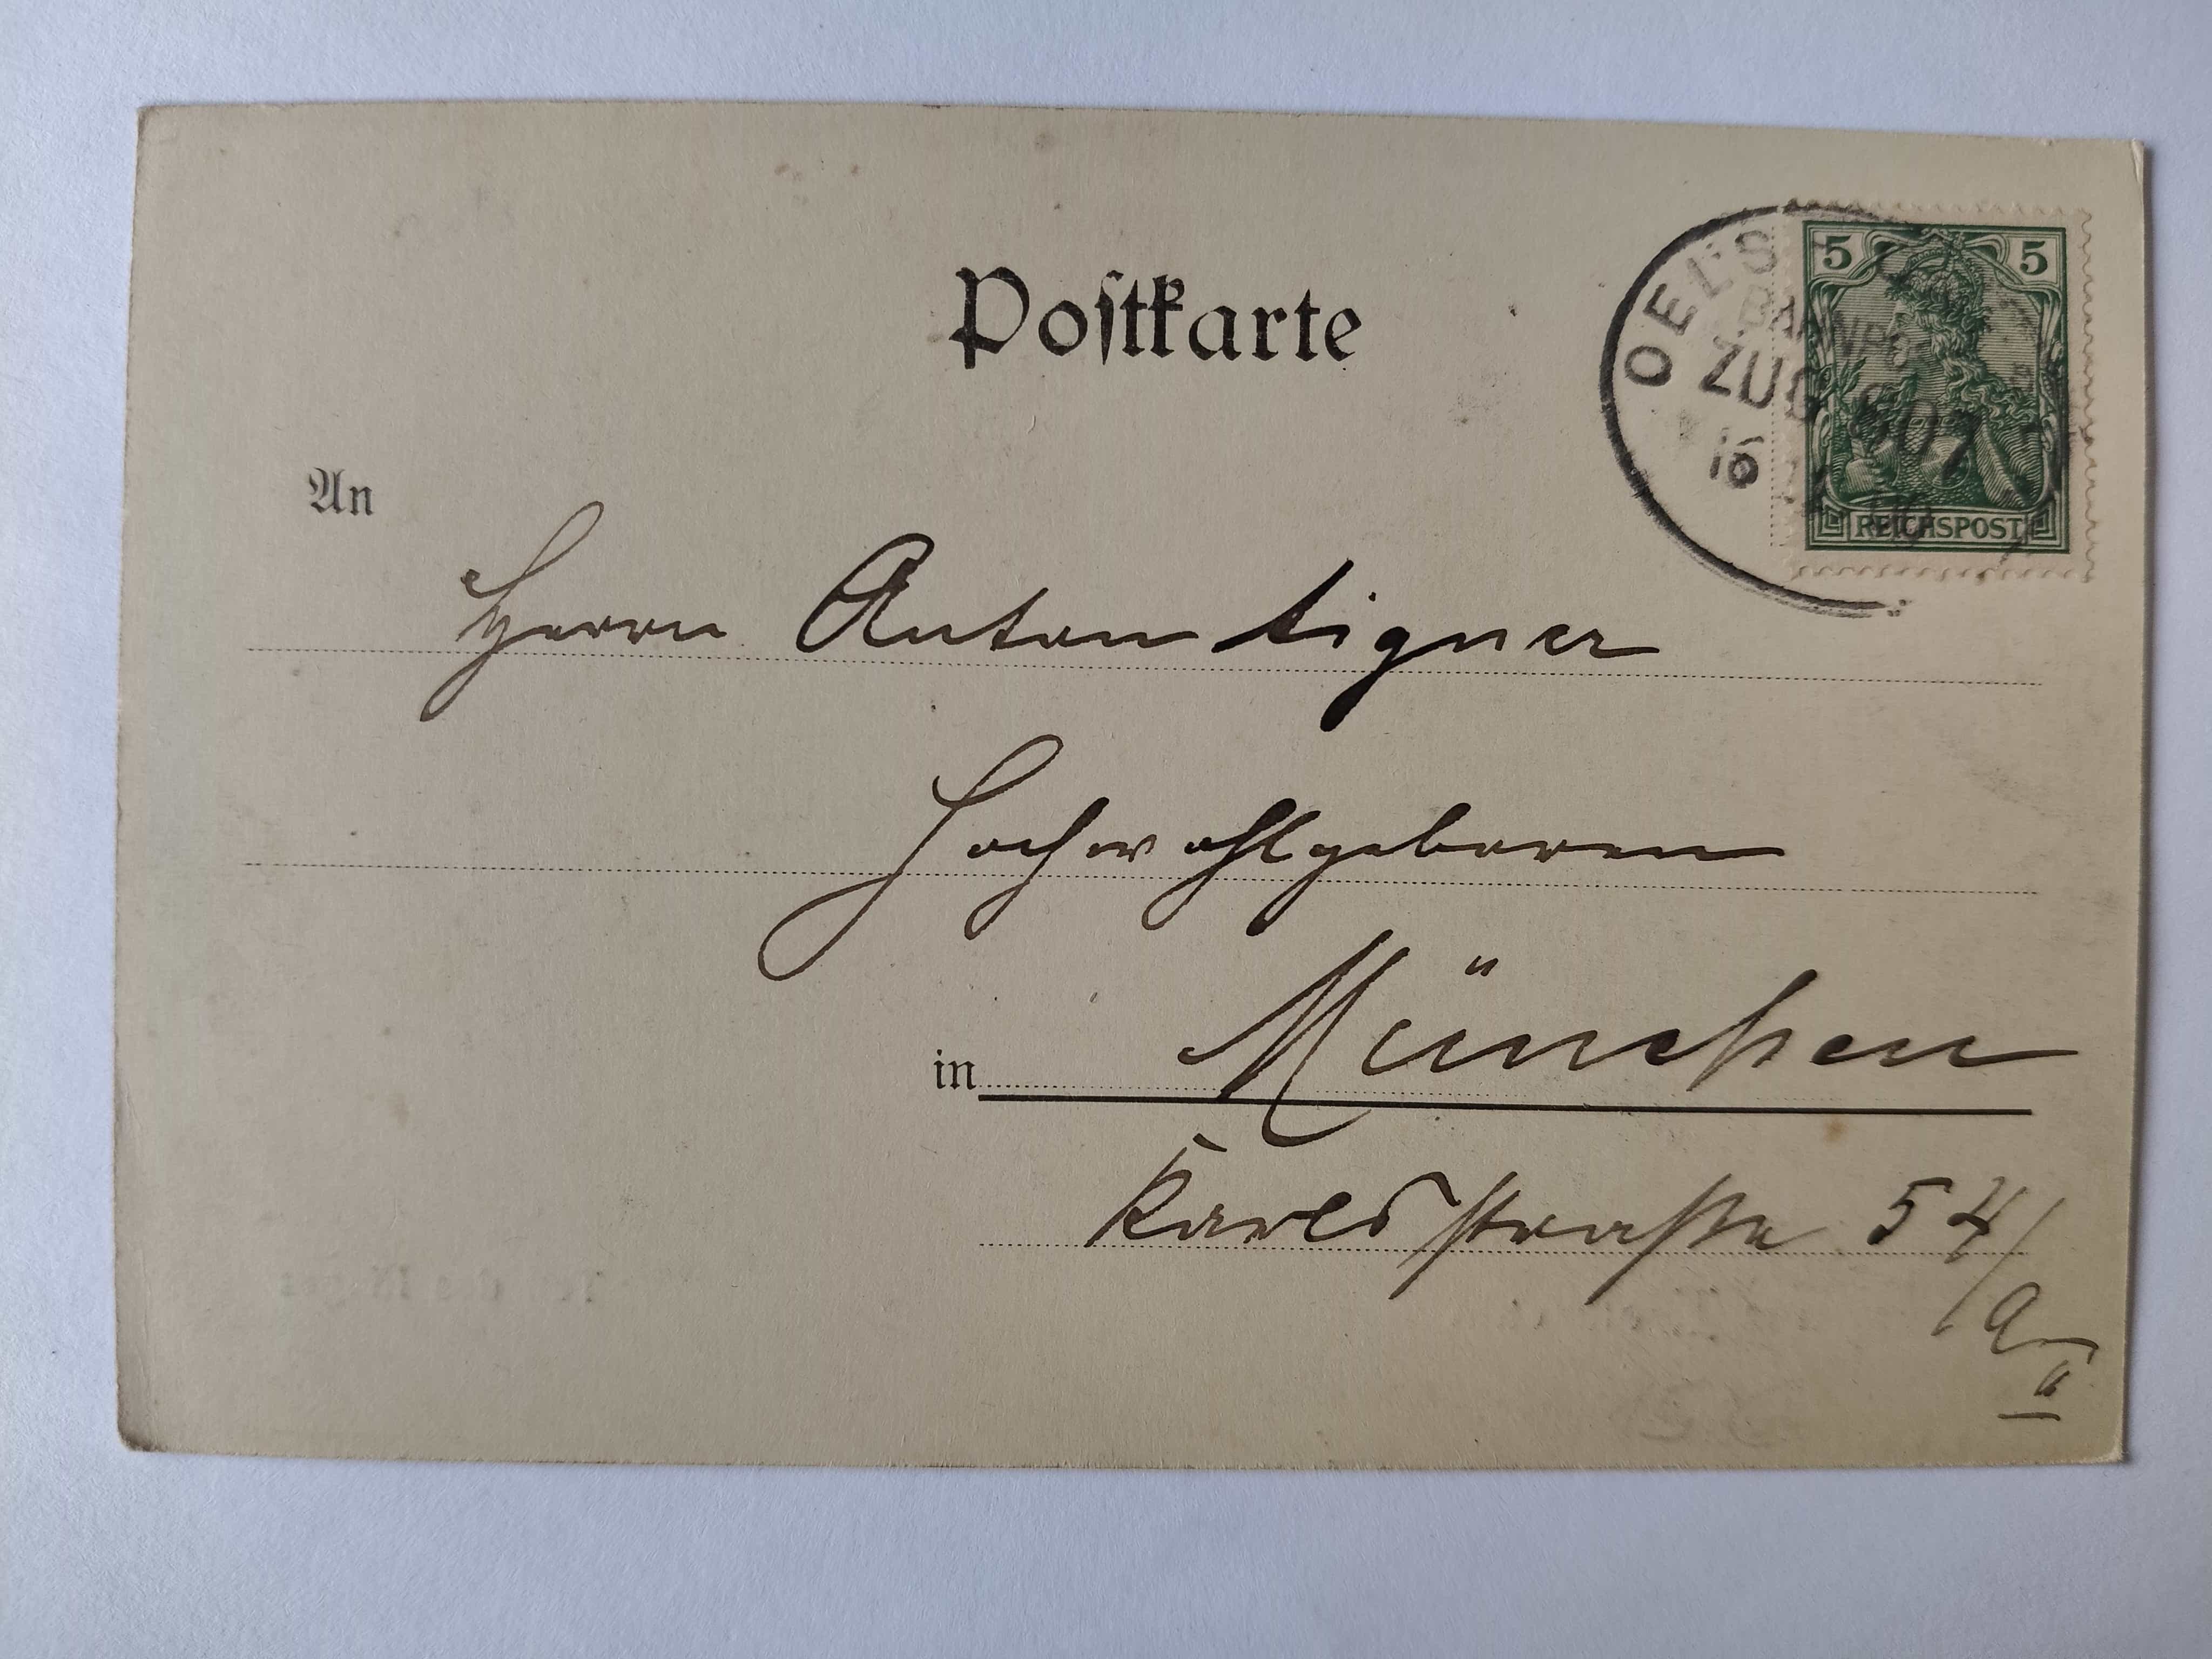 Postkarte
5 5
OELS
BAHNP
ZUG 807
16
REICHSPOST
An
Herrn Anton Aigner
Hochwohlgeboren
in München
Karlsstraße 54/
a
II